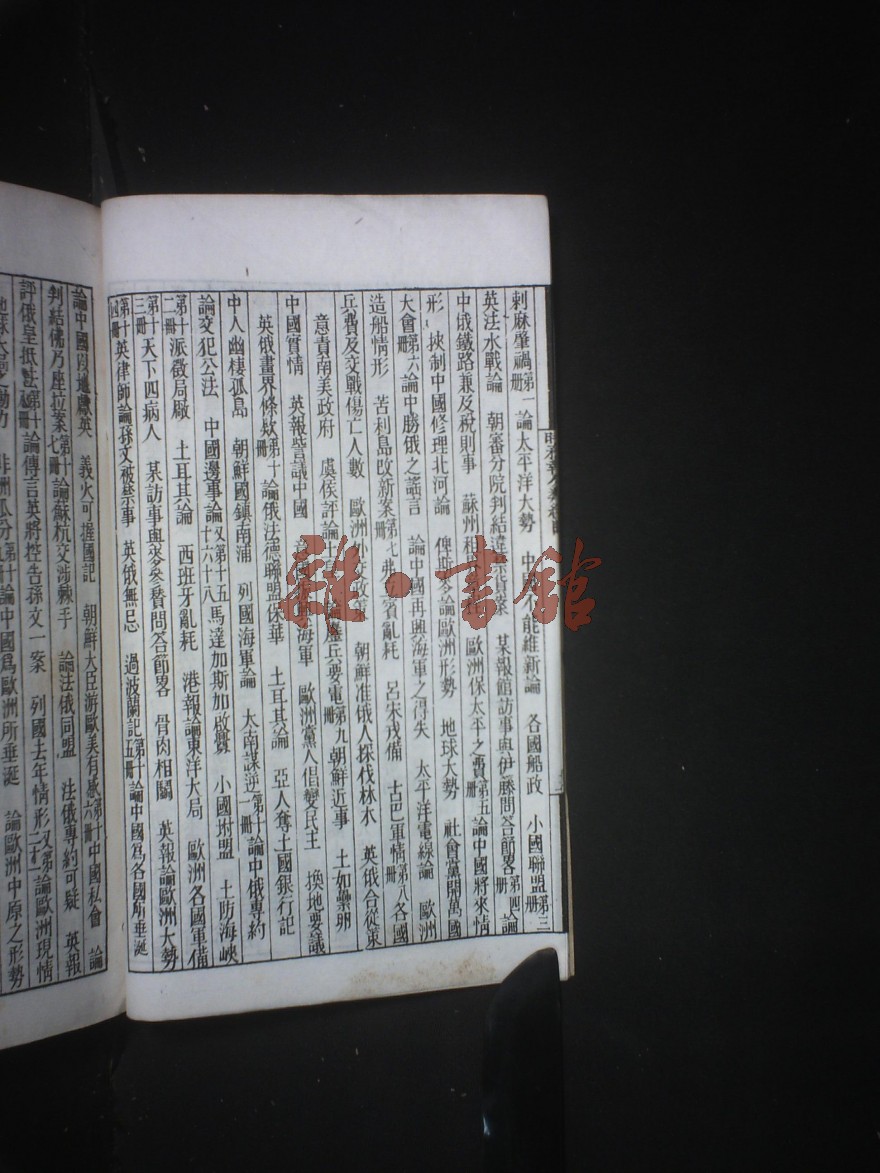 刺麻肇禍第一冊 論太平洋大勢 中 不能維新論 各國船政 小國聯盟第三冊
英法水戰論 朝審分院判結違 某報館訪事與伊藤問答節畧第四冊 論
中俄鐵路兼及稅則事 蘇州相 歐洲保太平之費第五冊 論中國將來情
形 挾制中國修理北河論 俾 論歐洲形勢 地球大勢 社會黨開萬國
大會第六冊 論中勝俄之謠言 論中國再興海軍之得失 太平洋電線論 歐洲
造船情形 苦利島改新案第七冊 弗 賓亂耗 呂宋戎備 古巴軍情第八冊 各國
兵費及交戰傷亡人數 歐洲 政 朝鮮准俄人採伐林木 英俄合從策
意責南美政府 虞侯評論土 兵要電第九冊 朝鮮近事 土如纍卵
中國實情 英報訾議中國 海軍 歐洲黨人倡變民主 換地要議
英俄畫界條欵第十冊 論俄法德聯盟保華 土耳其論 亞人奪土國銀行記
中人幽棲孤島 朝鮮國鎮南浦 列國海軍論 太南謀逆第十一冊 論中俄專約
論交犯公法 中國邊事論又第十五十六十八 馬達加斯加啟釁 小國坿盟 土防海峽
第十二冊 派徵局厰 土耳其論 西班牙亂耗 港報論東洋大局 歐洲各國軍備
第十三冊 天下四病人 某訪事與麥參贊問答節畧 骨肉相關 英報論歐洲大勢
第十四冊 英律師論孫文被禁事 英俄無忌 過波蘭記第十五冊 論中國爲各國所垂涎
論中國沒地獻英 義火可握國記 朝鮮大臣游歐美有感第十六冊 中國私會 論
判結佛乃座拉案第十七冊 論蘇杭交涉棘手 論法俄同盟 法俄專約可疑 英報
評俄皇抵法 論傳言英將控告孫文一案 列國去年情形 論歐洲現情
非洲瓜分 論中國爲歐洲所垂涎 論歐洲中原之形勢
雜·書館